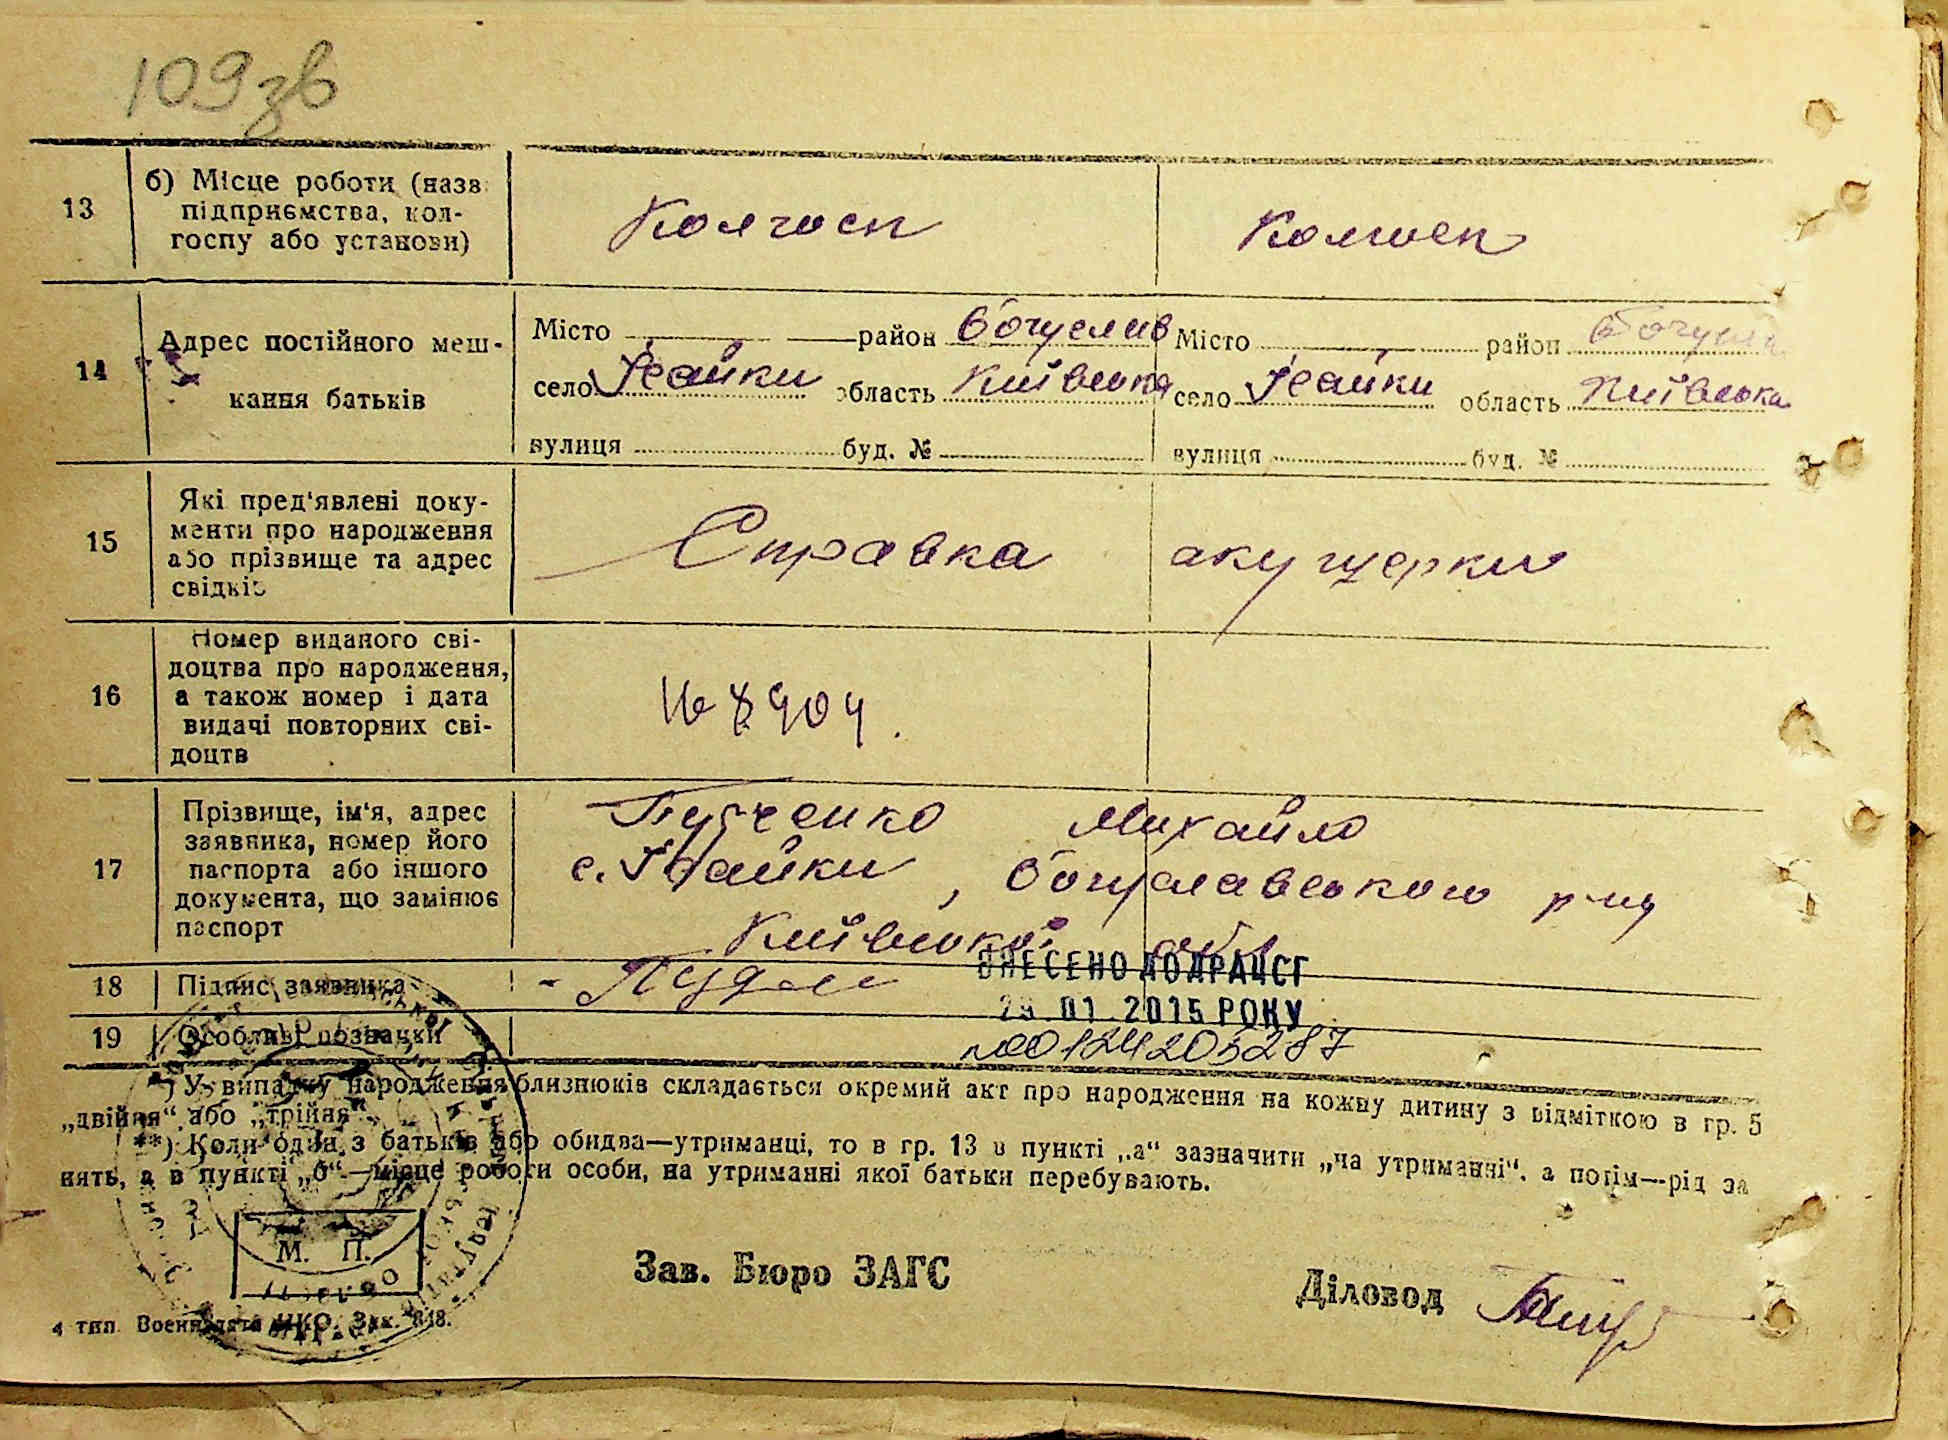 109зв
13
б) Місце роботи (назв
підприємства, кол-
госпу або установи)
Колгосп
Колгосп
14
Адрес постійного меш-
кання батьків
Місто район Богуслав
село Ісайки область Київська
вулиця буд. №
Місто район Богусл
село Ісайки область Київська
вулиця буд. №
15
Які пред'явлені доку-
менти про народження
або прізвище та адрес
свідків
Справка акушерки
16
Номер виданого сві-
доцтва про народження,
а також номер і дата
видачі повторних сві-
доцтв
№ 8904
17
Прізвище, ім'я, адрес
заявника, номер його
паспорта або іншого
документа, що замінює
паспорт
Михайло
с. Ісайки, Богуславського р-ну
Київської обл
18
Підпис заявника
19
Особливі позначки
ВНЕСЕНО ДО ДРАЦСГ
01 2015 РОКУ
№001242053287
*) У випадку народження близнюків складається окремий акт про народження на кожну дитину з відміткою в гр. 5
„двійня“ або „трійня“.
**) Коли один з батьків або обидва—утриманці, то в гр. 13 в пункті „а“ зазначити „на утриманні“, а потім—рід за
нять, а в пункті „б“—місце роботи особи, на утриманні якої батьки перебувають.
М. П.
Зав. Бюро ЗАГС
Діловод
4 тип. НКО. Зак. 848.